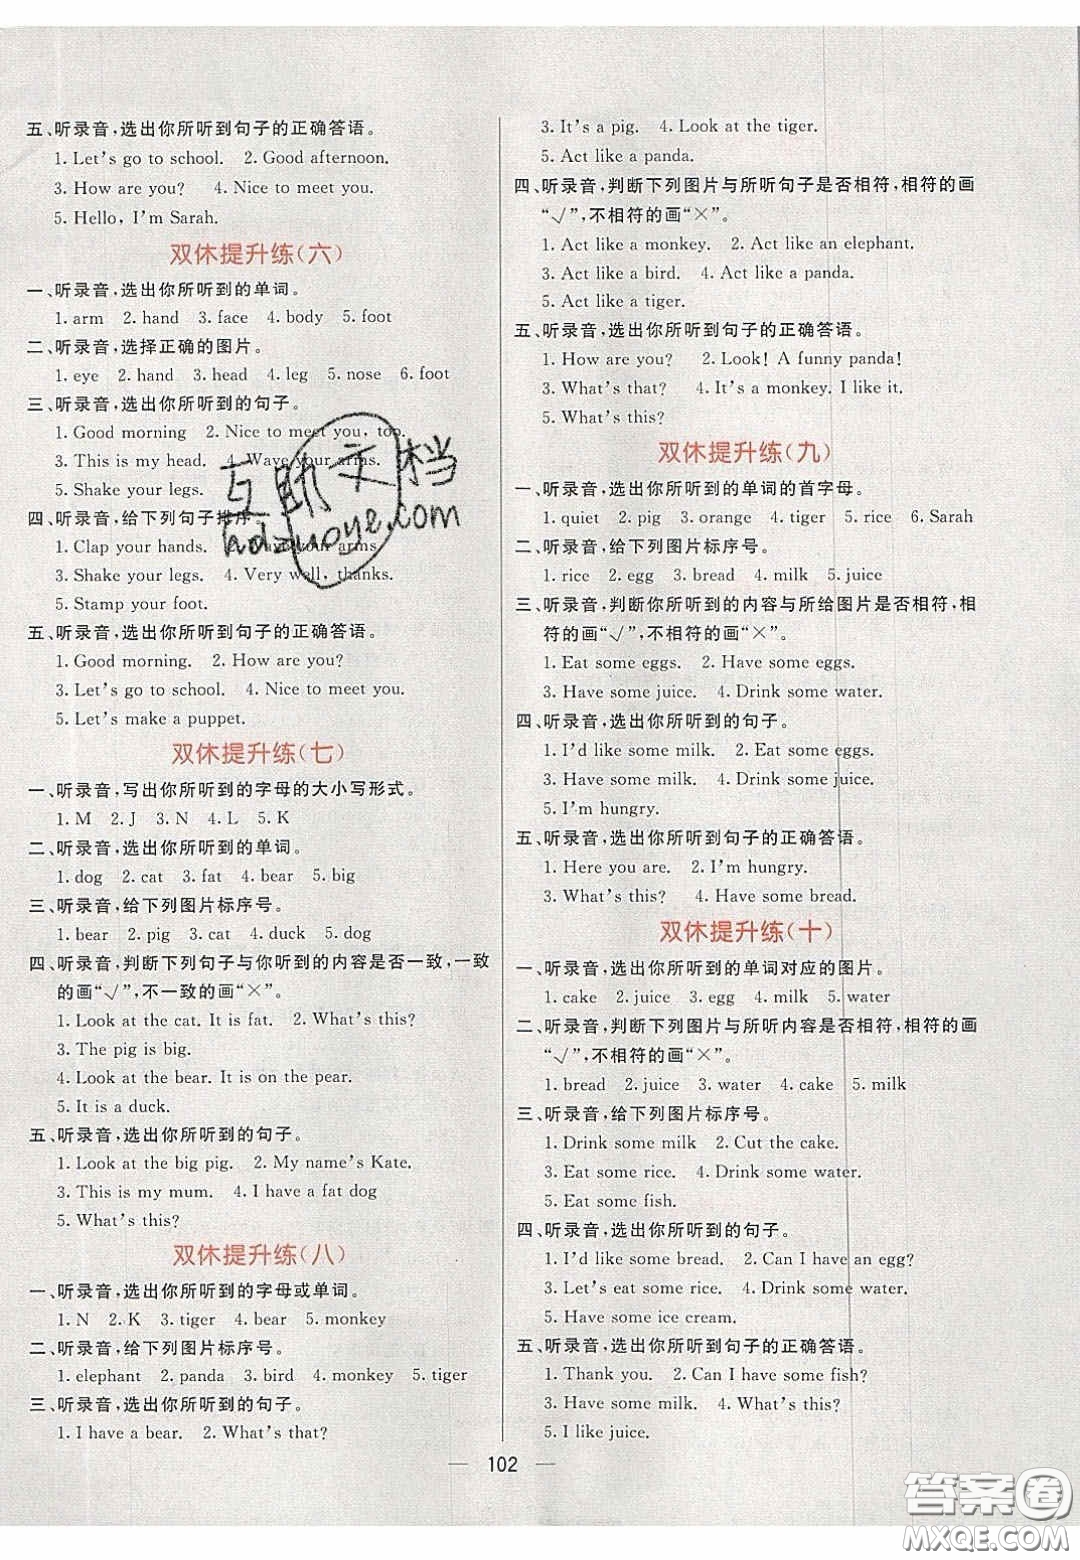 五、听录音,选出你所听到句子的正确答语。
1. Let's go to school.  2. Good afternoon.
3. How are you?  4. Nice to meet you.
5. Hello, I'm Sarah.
双休提升练(六)
一、听录音,选出你所听到的单词。
1. arm  2. hand  3. face  4. body  5. foot
二、听录音,选择正确的图片。
1. eye  2. hand  3. head  4. leg  5. nose  6. foot
三、听录音,选出你所听到的句子。
1. Good morning  2. Nice to meet you, too.
3. This is my head.  4. Wave your arms.
5. Shake your legs.
四、听录音,给下列句子排序。
1. Clap your hands.  2. your arms.
3. Shake your legs.  4. Very well, thanks.
5. Stamp your foot.
五、听录音,选出你所听到句子的正确答语。
1. Good morning.  2. How are you?
3. Let's go to school.  4. Nice to meet you.
5. Let's make a puppet.
双休提升练(七)
一、听录音,写出你所听到的字母的大小写形式。
1. M  2. J  3. N  4. L  5. K
二、听录音,选出你所听到的单词。
1. dog  2. cat  3. fat  4. bear  5. big
三、听录音,给下列图片标序号。
1. bear  2. pig  3. cat  4. duck  5. dog
四、听录音,判断下列句子与你听到的内容是否一致,一致
的画“√”,不一致的画“×”。
1. Look at the cat. It is fat.  2. What's this?
3. The pig is big.
4. Look at the bear. It is on the pear.
5. It is a duck.
五、听录音,选出你所听到的句子。
1. Look at the big pig.  2. My name's Kate.
3. This is my mum.  4. I have a fat dog
5. What's this?
双休提升练(八)
一、听录音,选出你所听到的字母或单词。
1. N  2. K  3. tiger  4. bear  5. monkey
二、听录音,给下列图片标序号。
1. elephant  2. panda  3. bird  4. monkey  5. tiger
三、听录音,选出你所听到的句子。
1. I have a bear.  2. What's that?
3. It's a pig.  4. Look at the tiger.
5. Act like a panda.
四、听录音,判断下列图片与所听句子是否相符,相符的画
“√”,不相符的画“×”。
1. Act like a monkey.  2. Act like an elephant.
3. Act like a bird.  4. Act like a panda.
5. Act like a tiger.
五、听录音,选出你所听到句子的正确答语。
1. How are you?  2. Look! A funny panda!
3. What's that?  4. It's a monkey. I like it.
5. What's this?
双休提升练(九)
一、听录音,选出你所听到的单词的首字母。
1. quiet  2. pig  3. orange  4. tiger  5. rice  6. Sarah
二、听录音,给下列图片标序号。
1. rice  2. egg  3. bread  4. milk  5. juice
三、听录音,判断你所听到的内容与所给图片是否相符,相
符的画“√”,不相符的画“×”。
1. Eat some eggs.  2. Have some eggs.
3. Have some juice.  4. Drink some water.
四、听录音,选出你所听到的句子。
1. I'd like some milk.  2. Eat some eggs.
3. Have some milk.  4. Drink some juice.
5. I'm hungry.
五、听录音,选出你所听到句子的正确答语。
1. Here you are.  2. I'm hungry.
3. What's this?  4. Have some bread.
双休提升练(十)
一、听录音,选出你所听到的单词对应的图片。
1. cake  2. juice  3. egg  4. milk  5. water
二、听录音,判断下列图片与所听内容是否相符,相符的画
“√”,不相符的画“×”。
1. bread  2. juice  3. water  4. cake  5. milk
三、听录音,给下列图片标序号。
1. Drink some milk  2. Cut the cake.
3. Eat some rice.  4. Drink some water.
5. Eat some fish.
四、听录音,选出你所听到的句子。
1. I'd like some bread.  2. Can I have an egg?
3. Let's eat some rice.  4. Drink some water.
5. Have some ice cream.
五、听录音,选出你所听到句子的正确答语。
1. Thank you.  2. Can I have some fish?
3. Have some milk.  4. What's this?
5. I like juice.
102
互助文档
hdzuoye.com
答案圈
MXQE.COM